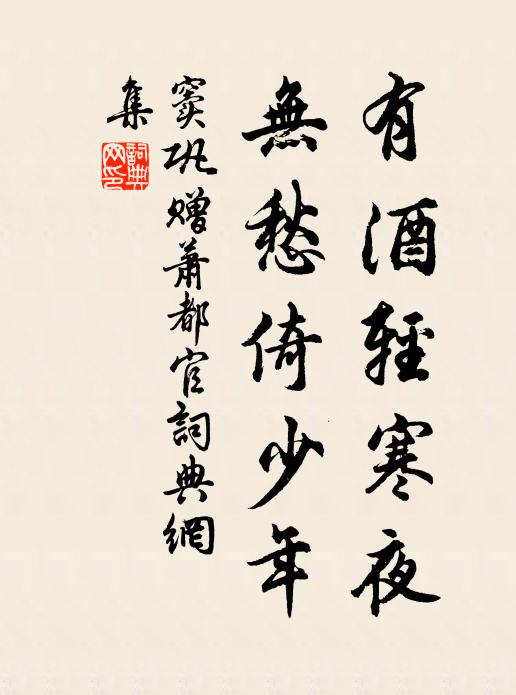 有酒輕寒夜
無愁倚少年
竇鞏贈蕭都官詞典網
集
詞典網印